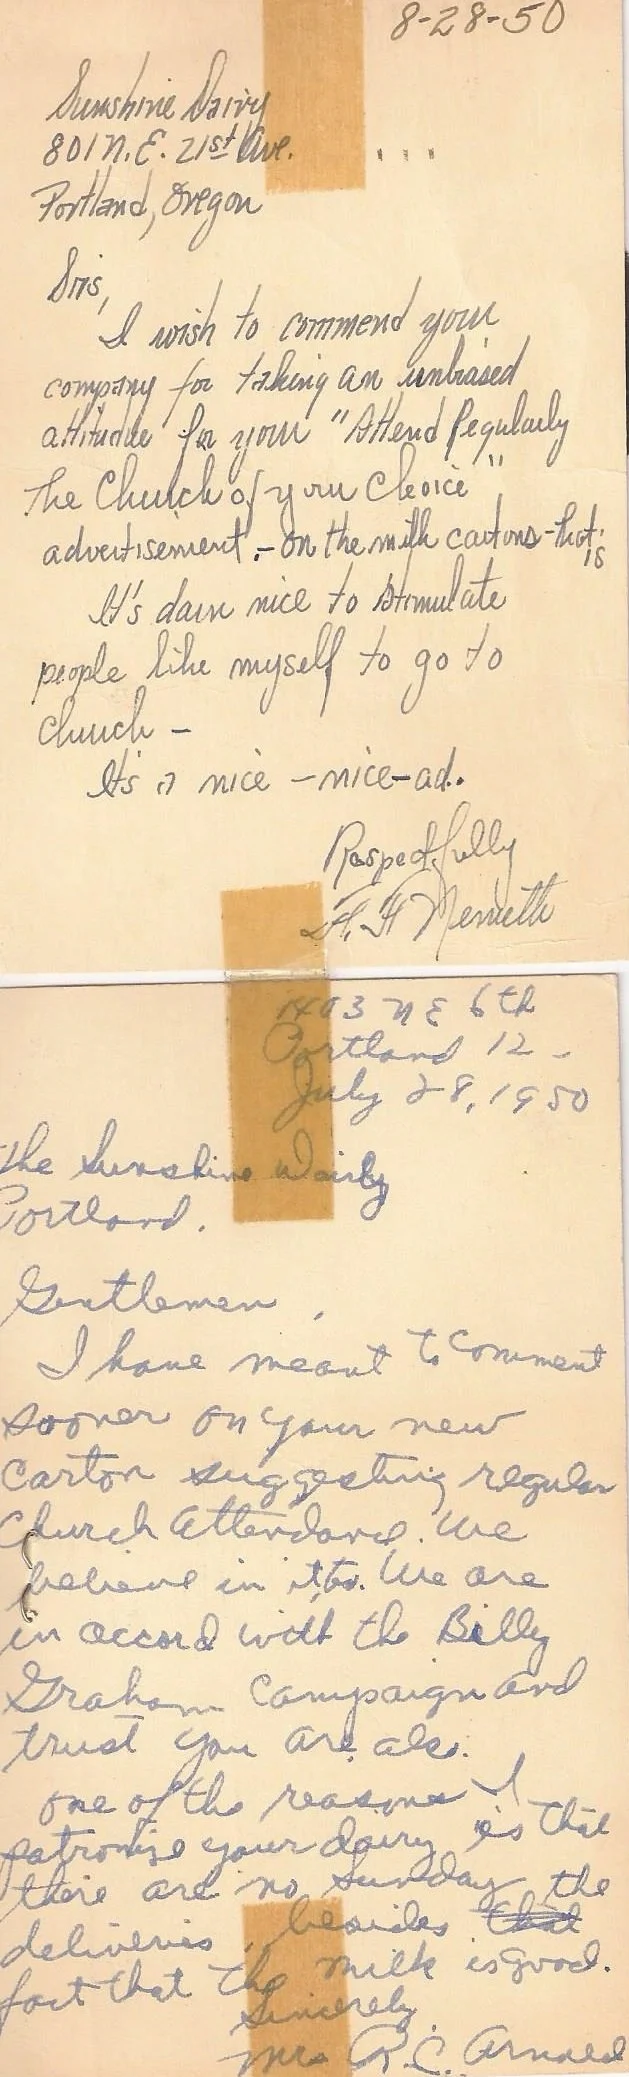 8-28-50
Sunshine Dairy
801 N.E. 21st Ave.
Portland, Oregon
Sirs,
I wish to commend your
company for taking an unbiased
attitude for your "Attend Regularly
the Church of your Choice"
advertisement - on the milk cartons - that is
It's darn nice to stimulate
people like myself to go to
church -
It's a nice - nice - ad.
Respectfully
H. H. Nemeth
1403 N E 6th
Portland 12 -
July 28, 1950
The Sunshine Dairy
Portland.
Gentlemen,
I have meant to comment
sooner on your new
Carton suggesting regular
Church Attendance. We
believe in it, too. We are
in accord with the Billy
Graham Campaign and
trust you are also.
One of the reasons I
patronize your dairy is that
there are no Sunday
deliveries, besides the
fact that the milk is good.
Sincerely
Mrs R. C. Arnold